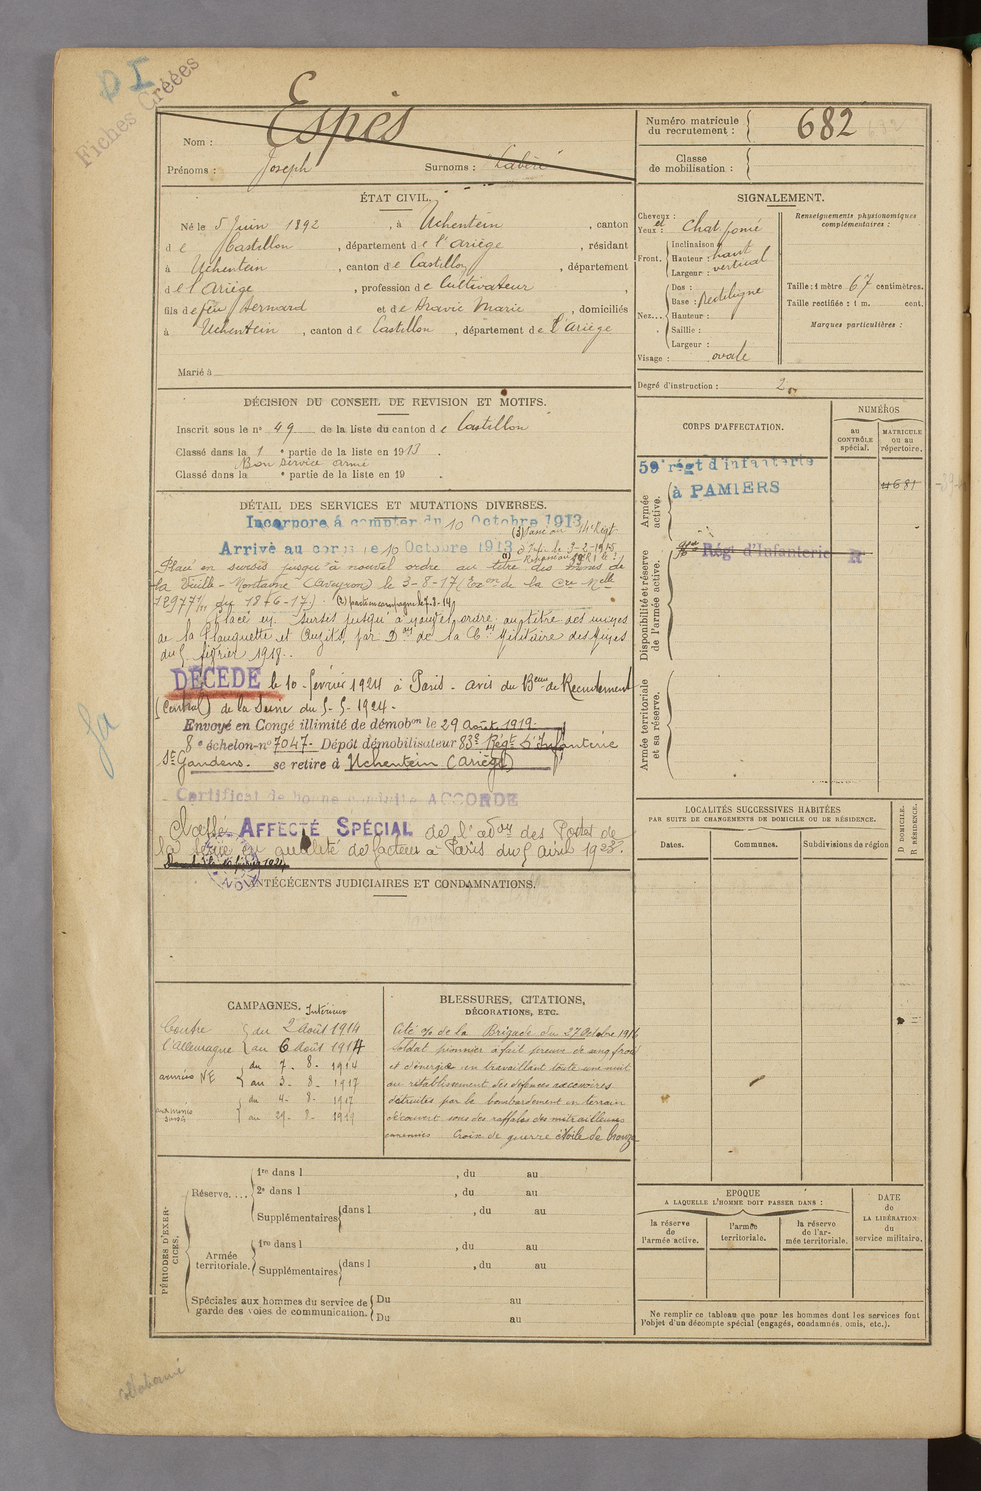 D I
Fiches Créées
Nom : Espès
Prénoms : Joseph Surnoms :
Numéro matricule
du recrutement : 682
Classe
de mobilisation :
ÉTAT CIVIL.
Né le 5 Juin 1892, à Uchentein, canton
de Castillon, département de l'Ariège, résidant
à Uchentein, canton de Castillon, département
de l'Ariège, profession de Cultivateur,
fils de feu Bernard et de Marie, domiciliés
à Uchentein, canton de Castillon, département de l'Ariège
Marié à
SIGNALEMENT.
Cheveux :
et
Yeux : Chat. foncé
Front. Inclinaison :
Hauteur : haut
Largeur : vertical
Nez... Dos :
Base : Rectiligne
Hauteur :
Saillie :
Largeur :
Visage : ovale
Renseignements physionomiques
complémentaires :
Taille : 1 mètre 67 centimètres.
Taille rectifiée : 1 m. cent.
Marques particulières :
Degré d'instruction : 2
DÉCISION DU CONSEIL DE REVISION ET MOTIFS.
Inscrit sous le n° 49 de la liste du canton de Castillon
Classé dans la 1e partie de la liste en 1913.
Bon service armé
Classé dans la e partie de la liste en 19 .
DÉTAIL DES SERVICES ET MUTATIONS DIVERSES.
Incorporé à compter du 10 Octobre 1913
Arrivé au corps le 10 Octobre 1913
Placé en sursis jusqu'à nouvel ordre au titre des mines de
la Vieille-Montagne (Aveyron) le 3-8-17
placé en sursis jusqu'à nouvel ordre au titre des mines
de la Plagnette et
du 5 février 1918.
DÉCÉDÉ le 10 février 1924 à Paris - avis du Beau de Recrutement
(Central) de la Seine du 5-5-1924.
Envoyé en Congé illimité de démobon le 29 août 1919.
8e échelon-n° 7047. Dépôt démobilisateur 83e Régt d'Infanterie
St Gaudens. se retire à Uchentein (Ariège)
Certificat de bonne conduite ACCORDÉ
Classé AFFECTÉ SPÉCIAL de l'adon des Postes de
la Seine en qualité de facteur à Paris du 5 avril 1923.
ANTÉCÉDENTS JUDICIAIRES ET CONDAMNATIONS.
CORPS D'AFFECTATION.
NUMÉROS
au
CONTRÔLE
spécial.
MATRICULE
ou au
répertoire.
Armée
active.
59e régt d'infanterie
à PAMIERS
4681
Disponibilité et réserve
de l'armée active.
Rég d'Infanterie R
Armée territoriale
et sa réserve.
LOCALITÉS SUCCESSIVES HABITÉES
PAR SUITE DE CHANGEMENTS DE DOMICILE OU DE RÉSIDENCE.
Dates.
Communes.
Subdivisions de région
D. DOMICILE.
R. RÉSIDENCE.
CAMPAGNES.
Intérieur
Contre
l'Allemagne
du 2 août 1914
au 6 août 1914
armées NE
du 7 - 8 - 1914
au 3 - 8 - 1917
aux mines
du 4 - 8 - 1917
au 29 - 8 - 1919
BLESSURES, CITATIONS,
DÉCORATIONS, ETC.
Cité o/o de la Brigade du 27 Octobre 1916
Soldat pionnier a fait preuve de sang froid
et d'énergie en travaillant toute une nuit
au rétablissement des défenses accessoires
détruites par le bombardement en terrain
découvert sous des raffales des mitrailleuses
ennemies Croix de guerre étoile de bronze
PÉRIODES D'EXERCICES.
Réserve....
1re dans l , du au
2e dans l , du au
Supplémentaires dans l , du au
Armée
territoriale.
1re dans l , du au
Supplémentaires dans l , du au
Spéciales aux hommes du service de
garde des voies de communication.
Du au
Du au
EPOQUE
A LAQUELLE L'HOMME DOIT PASSER DANS :
la réserve
de
l'armée active.
l'armée
territoriale.
la réserve
de l'ar-
mée territoriale.
DATE
de
LA LIBÉRATION
du
service militaire.
Ne remplir ce tableau que pour les hommes dont les services font
l'objet d'un décompte spécial (engagés, condamnés, omis, etc.).